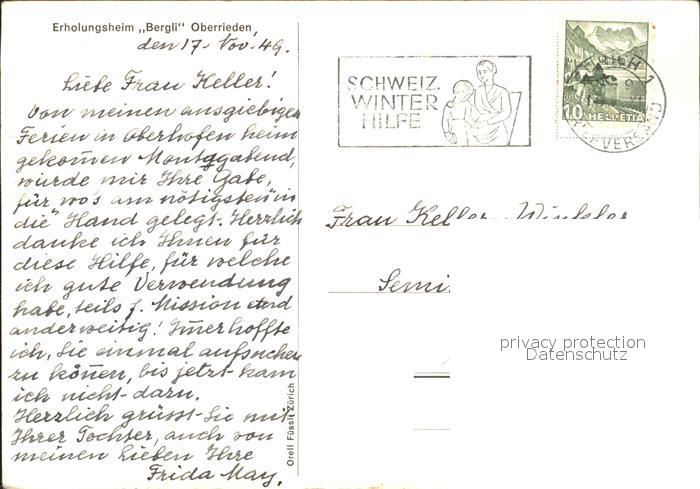 Erholungsheim „Bergli" Oberrieden
den 17. Nov. 49.
Liebe Frau Keller!
Von meinen ausgiebigen
Ferien in Oberhofen heim
gekom̄en Montagabend,
wurde mir Ihre Gabe,
für wo's am nötigsten" in
die Hand gelegt. Herzlich
danke ich Ihnen für
diese Hilfe, für welche
ich gute Verwendung
habe, teils f. Mission und
anderweitig! Im̄er hoffte
ich, Sie einmal aufsuchen
zu kön̄en, bis jetzt kam
ich nicht dazu.
Herzlich grüsst Sie mit
Ihrer Tochter, auch von
meinen Lieben Ihre
Frida May.
Orell Füssli Zürich
SCHWEIZ.
WINTER
HILFE
10 HELVETIA
Frau Keller-Winkler
Semi
privacy protection
Datenschutz